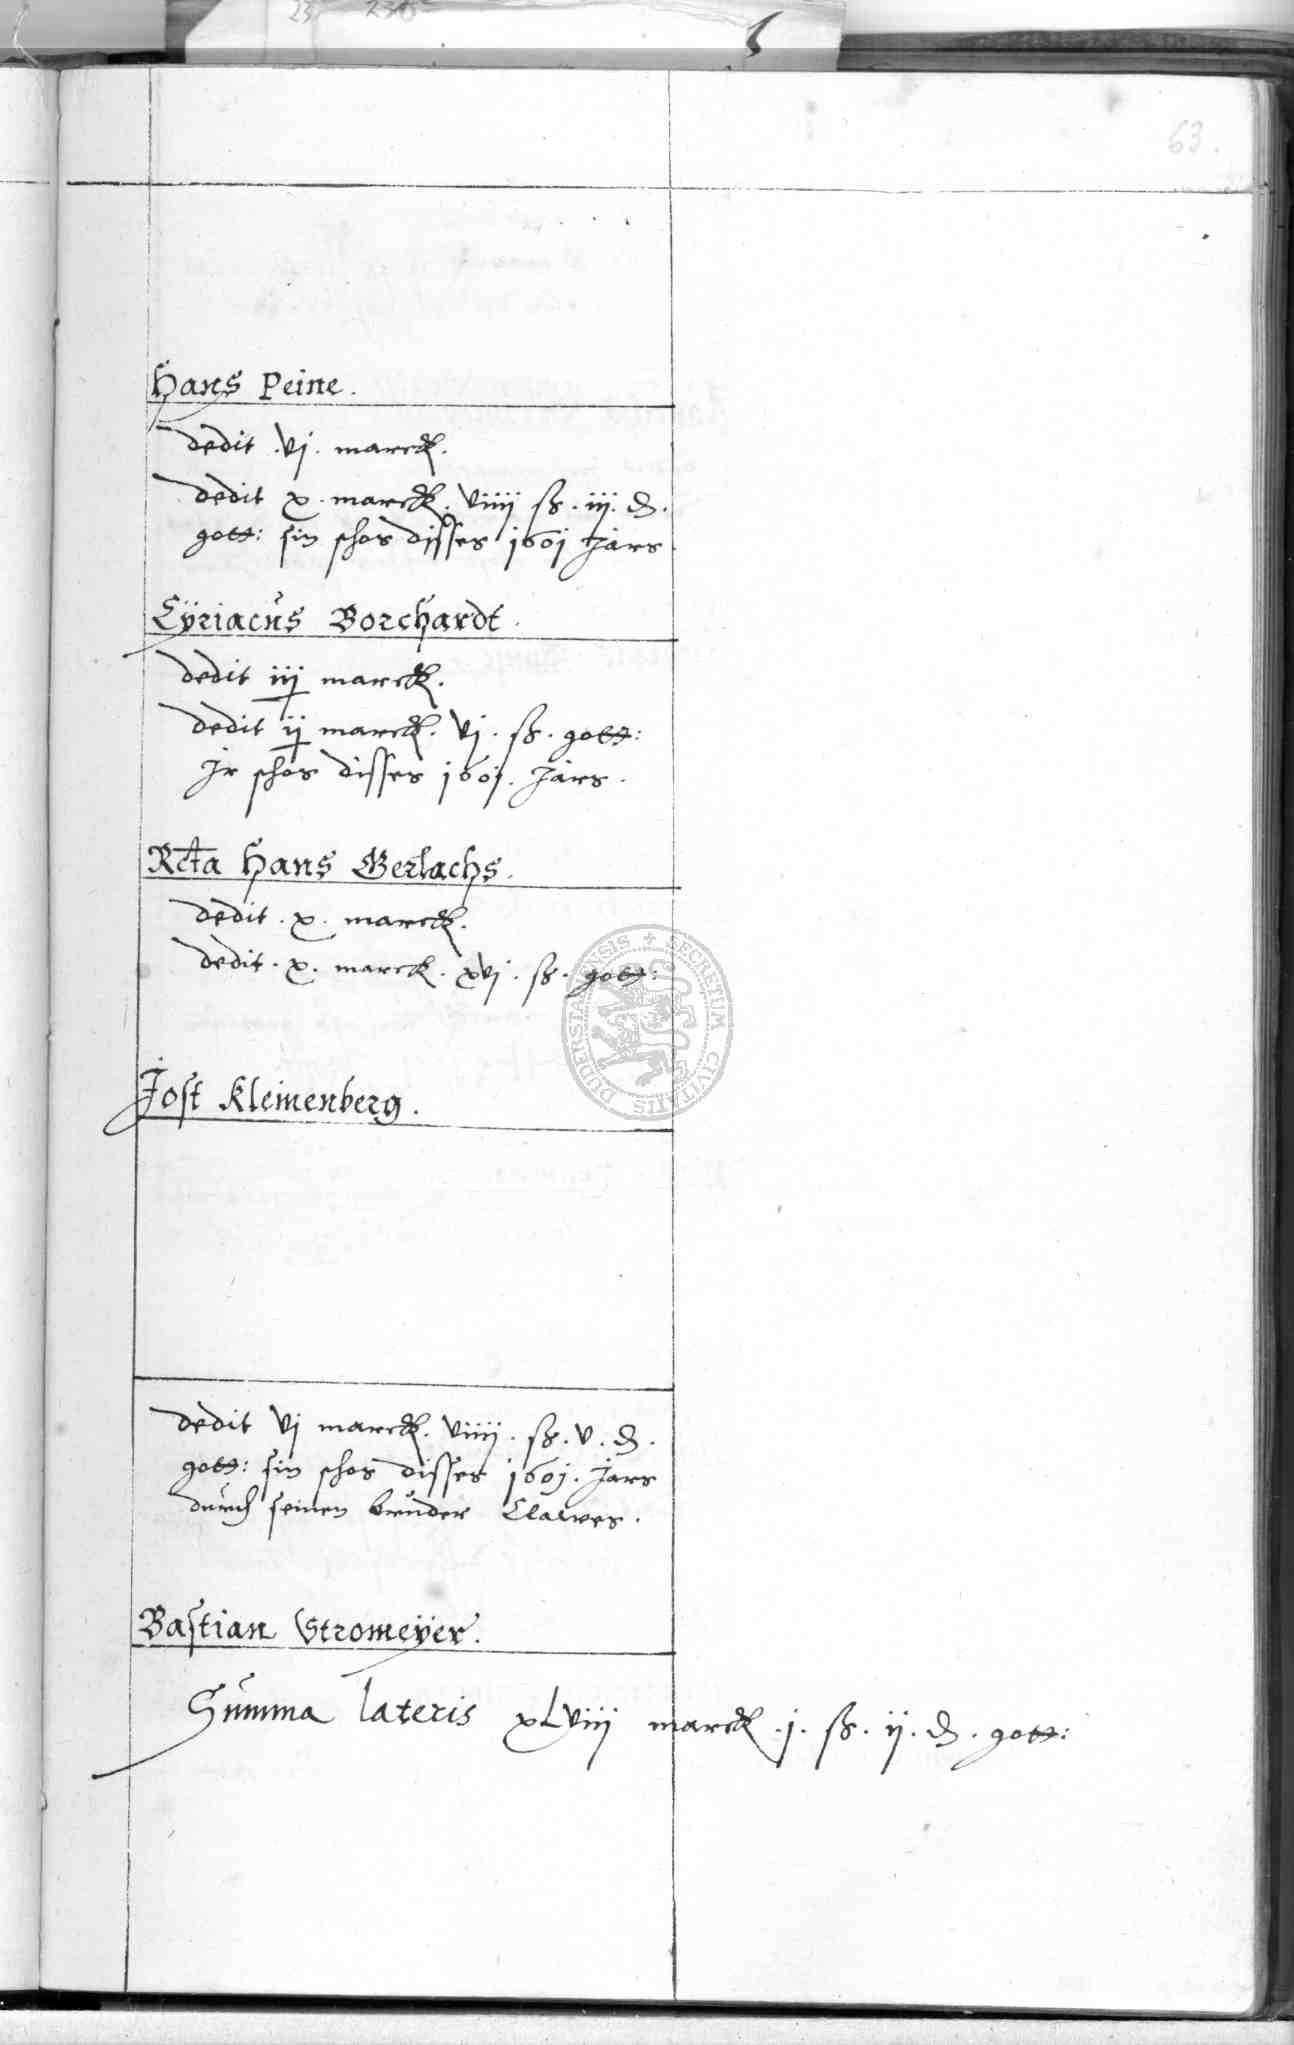 63.
Hans Peine.
dedit. vj. marck.
dedit x. marck. viiij ß. iij. ₰.
gott: sin schos disses 1601 Jars
Cÿriacus Borchardt.
dedit iij marck.
dedit ij marck. vj. ß. gott:
Jr schos disses 1601. Jars.
Rcta Hans Gerlachs.
dedit. x. marck.
dedit. x. marck. xvj. ß. gott:
SECRETUM CIVITATIS DUDERSTADENSIS
Jost Kleinenberg.
dedit vj marck. viiij. ß. v. ₰.
gott: sin schos disses 1601. Jars
durch seinen bruder Clawes.
Bastian Stromeÿer.
Summa lateris xLviij marck. j. ß. ij. ₰. gott: